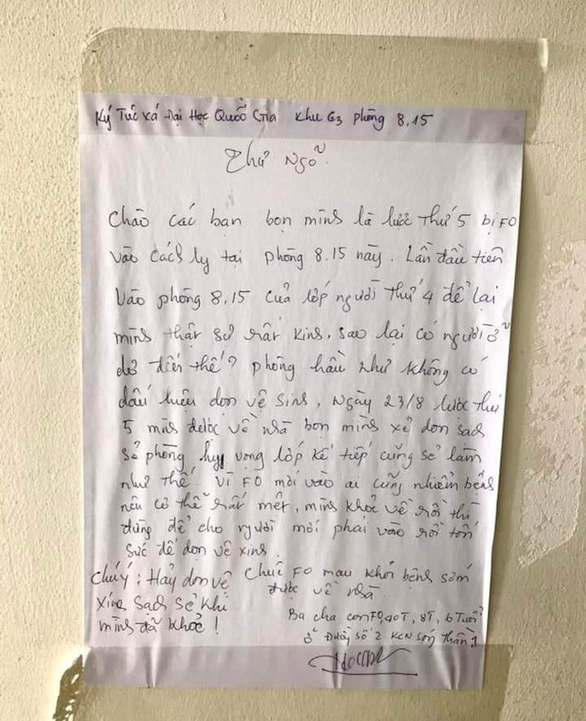 Ký Túc xá Đại Học Quốc Gia Khu G3 phòng 8.15
Thư Ngỏ
Chào các bạn bọn mình là lược thứ 5 bị F0
vào cách ly tại phòng 8.15 này. Lần đầu tiên
vào phòng 8.15 của lớp người thứ 4 để lại
mình thật sự rất kinh, sao lại có người ở
dơ đến thế? phòng hầu như không có
dấu hiệu dọn vệ sinh, Ngày 23/8 lược thứ
5 mình được về nhà bọn mình xẽ dọn sạch
sẽ phòng hy vọng lớp kế tiếp cũng sẽ làm
như thế. Vì F0 mới vào ai cũng nhiễm bệnh
nên có thể rất mệt, mình khỏe về rồi thì
đừng để cho người mới phai vào rồi tốn
sức để dọn vệ xinh.
Chúc F0 mau khỏi bệnh sớm
được về nhà
Chú ý: Hãy dọn vệ
xinh sạch sẽ khi
mình đã khoẻ!
Ba cha con F0, 40T, 8T, 6 Tuổi
ở Đường số 2 KCN Sóng Thần 1